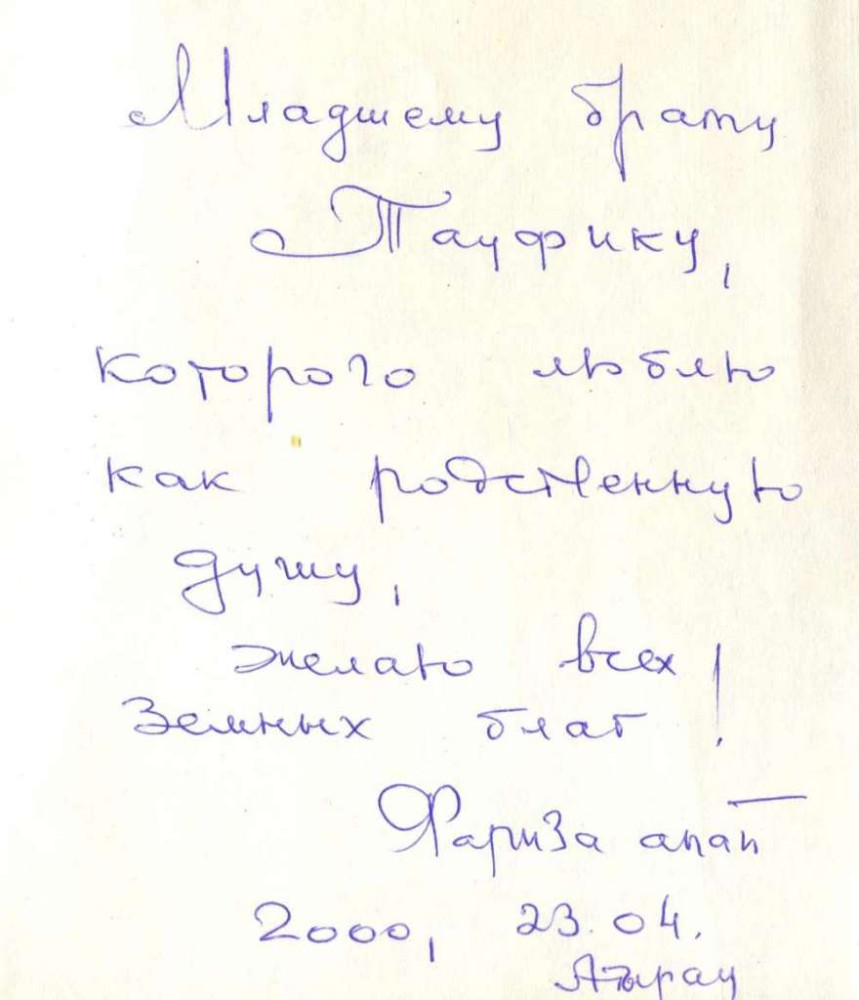 Младшему брату
Тауфику,
которого люблю
как родственную
душу,
желаю всех
Земных благ!
Фариза апай
2000, 23.04.
Атырау